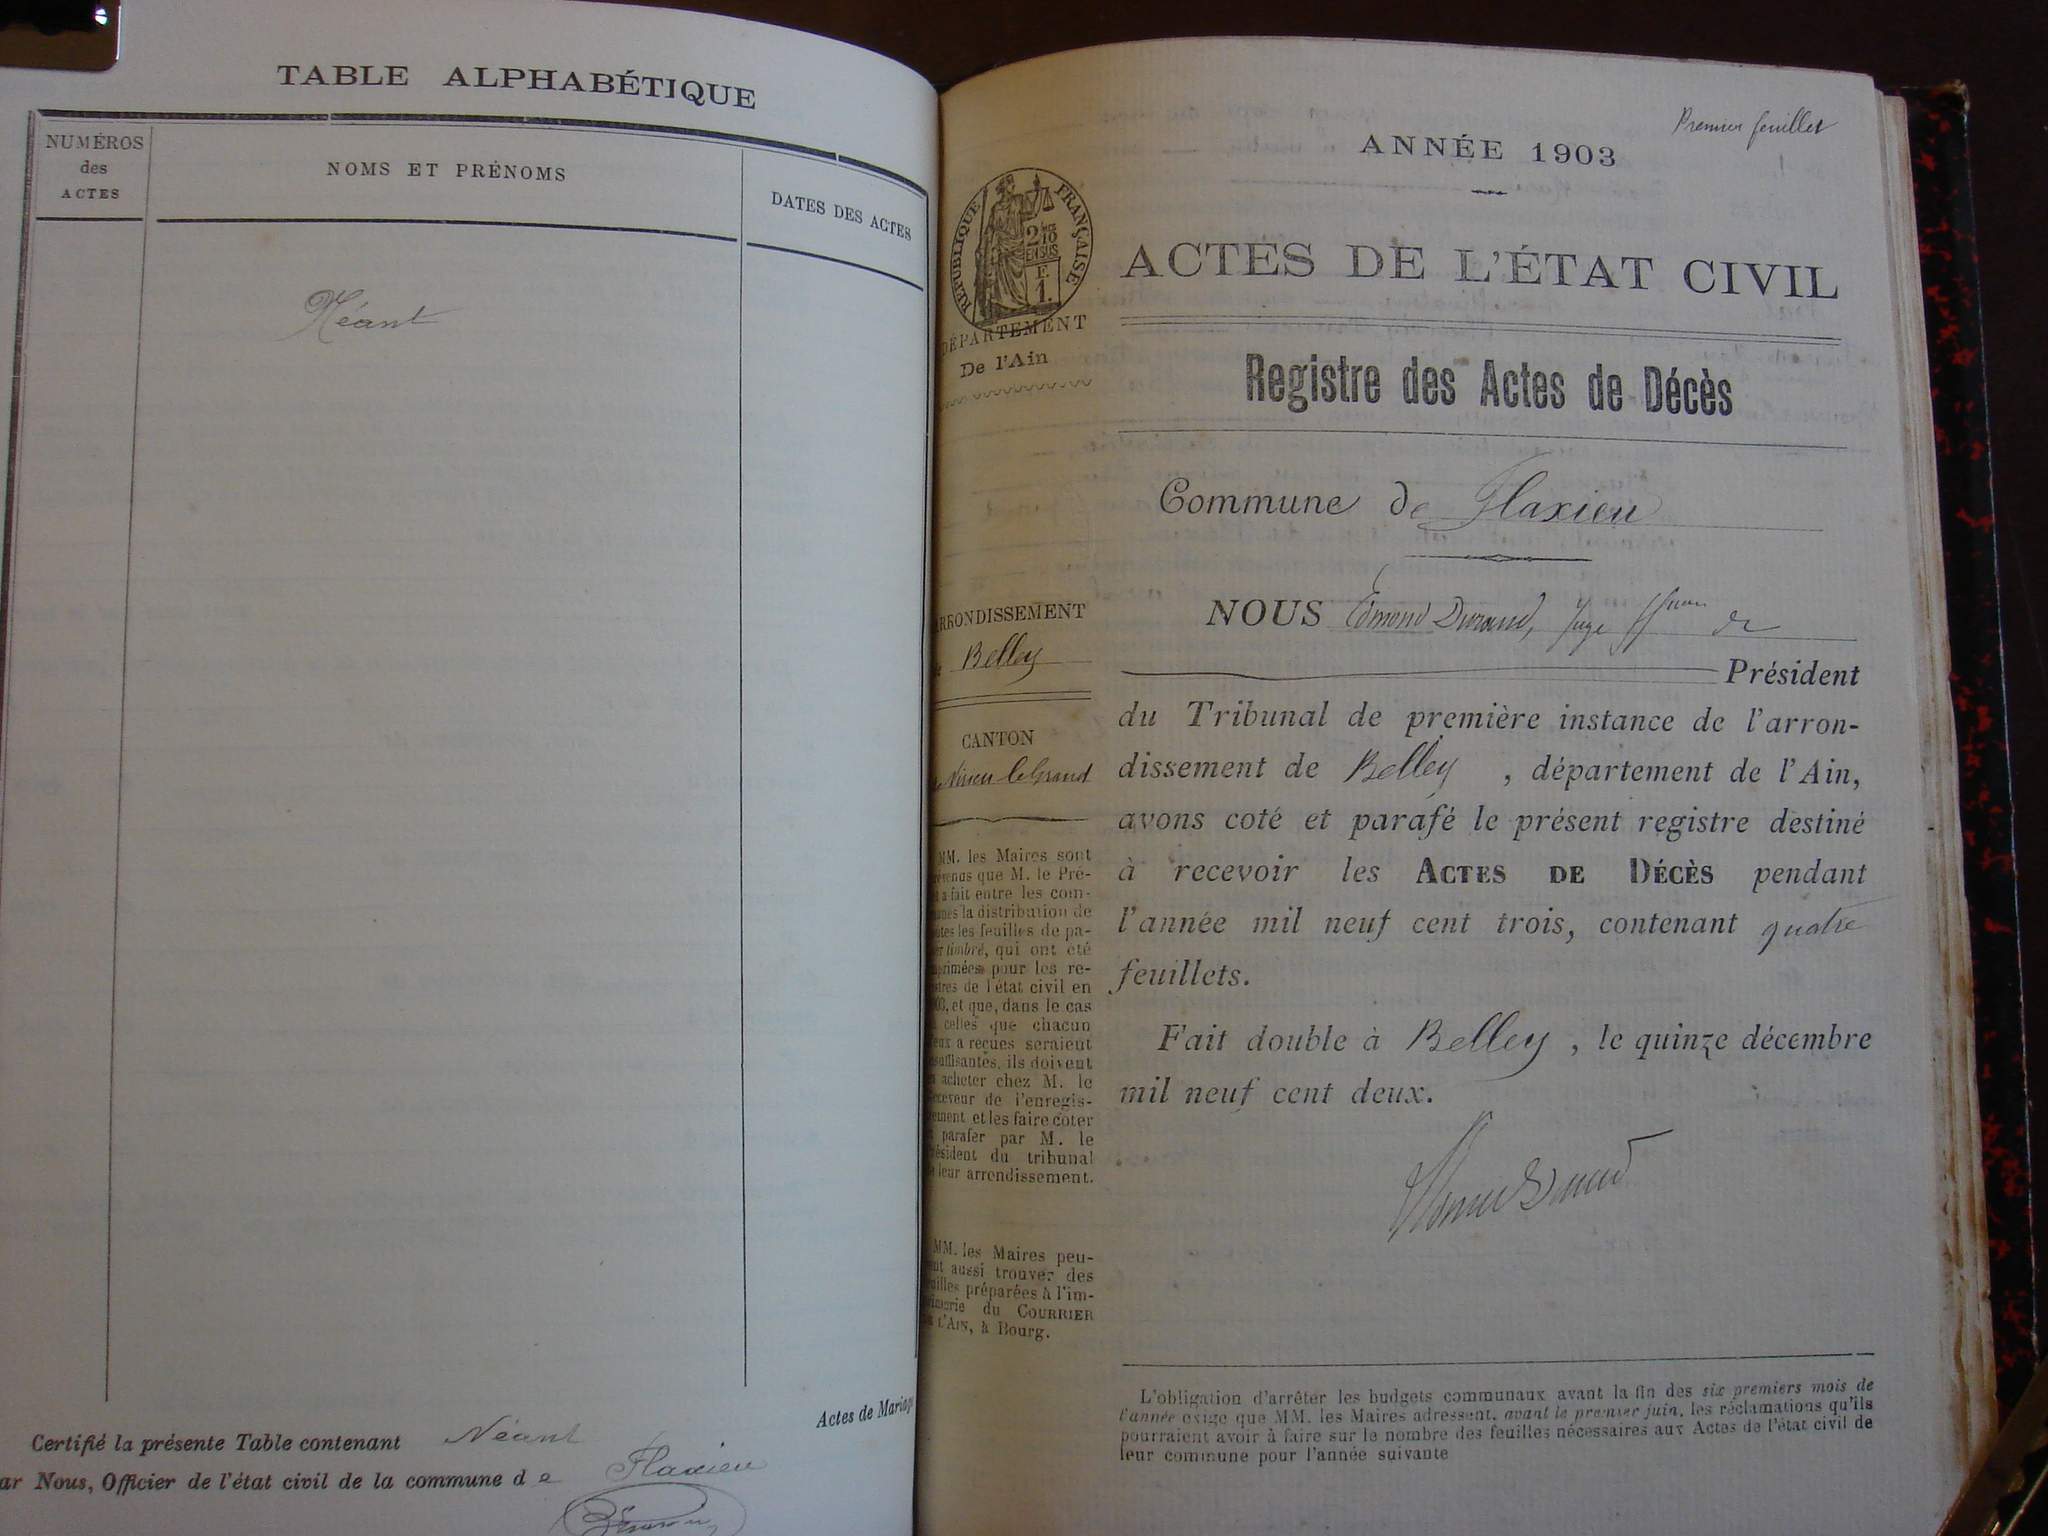 TABLE ALPHABÉTIQUE
NUMÉROS
des
ACTES
NOMS ET PRÉNOMS
DATES DES ACTES
Néant
Actes de Mariage
Certifié la présente Table contenant Néant
ar Nous, Officier de l'état civil de la commune de Flaxieu
Premier feuillet
ANNÉE 1903
RÉPUBLIQUE FRANÇAISE
2 10
EN SUS
F.
1.
DÉPARTEMENT
De l'Ain
ACTES DE L'ÉTAT CIVIL
Registre des Actes de Décès
Commune de Flaxieu
ARRONDISSEMENT
Belley
CANTON
de Virieu le Grand
MM. les Maires sont
révenus que M. le Pré-
et a fait entre les com-
munes la distribution de
utes les feuilles de pa-
er timbré, qui ont été
primées pour les re-
istres de l'état civil en
903, et que, dans le cas
celles que chacun
eux a reçues seraient
suffisantes, ils doivent
acheter chez M. le
eceveur de l'enregis-
rement et les faire coter
parafer par M. le
résident du tribunal
e leur arrondissement.
MM. les Maires peu-
ent aussi trouver des
uilles préparées à l'im-
rimerie du COURRIER
DE L'AIN, à Bourg.
NOUS Edmond Durand, Juge de
Président
du Tribunal de première instance de l'arron-
dissement de Belley, département de l'Ain,
avons coté et parafé le présent registre destiné
à recevoir les ACTES DE DÉCÈS pendant
l'année mil neuf cent trois, contenant quatre
feuillets.
Fait double à Belley, le quinze décembre
mil neuf cent deux.
L'obligation d'arrêter les budgets communaux avant la fin des six premiers mois de
l'année exige que MM. les Maires adressent, avant le premier juin, les réclamations qu'ils
pourraient avoir à faire sur le nombre des feuilles nécessaires aux Actes de l'état civil de
leur commune pour l'année suivante